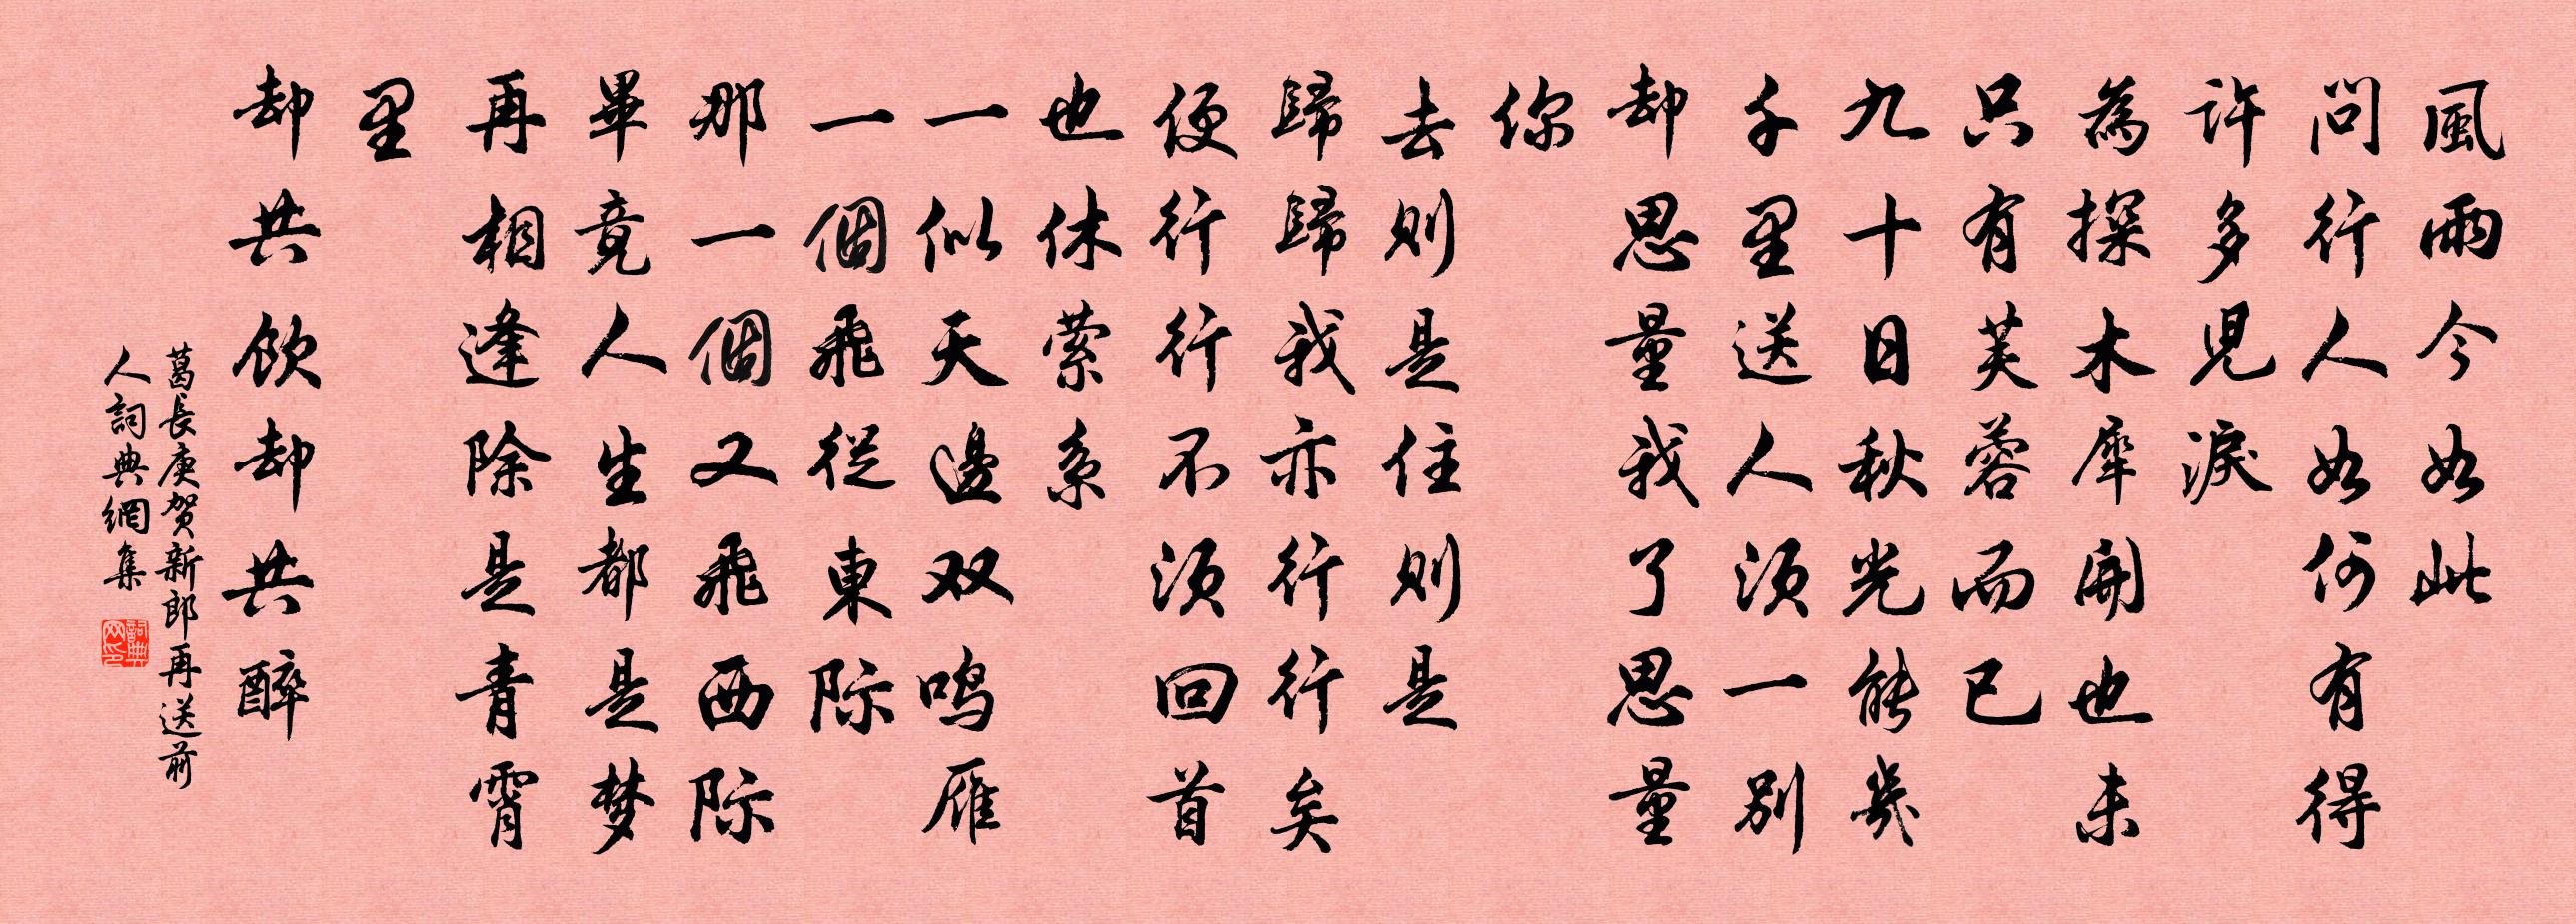 風雨今如此
問行人如何有得
許多児淚
為探木犀開也未
只有芙蓉而已
九十日秋光能幾
千里送人須一別
却思量我了思量
你
去則是住則是
歸歸我亦行行矣
便行行不須回首
也休萦系
一似天邊双鸣雁
一個飛從東际
那一個又飛西际
畢竟人生都是梦
再相逢除是青霄
里
却共饮却共醉
葛長庚贺新郎再送前
人詞典網集
詞典网印